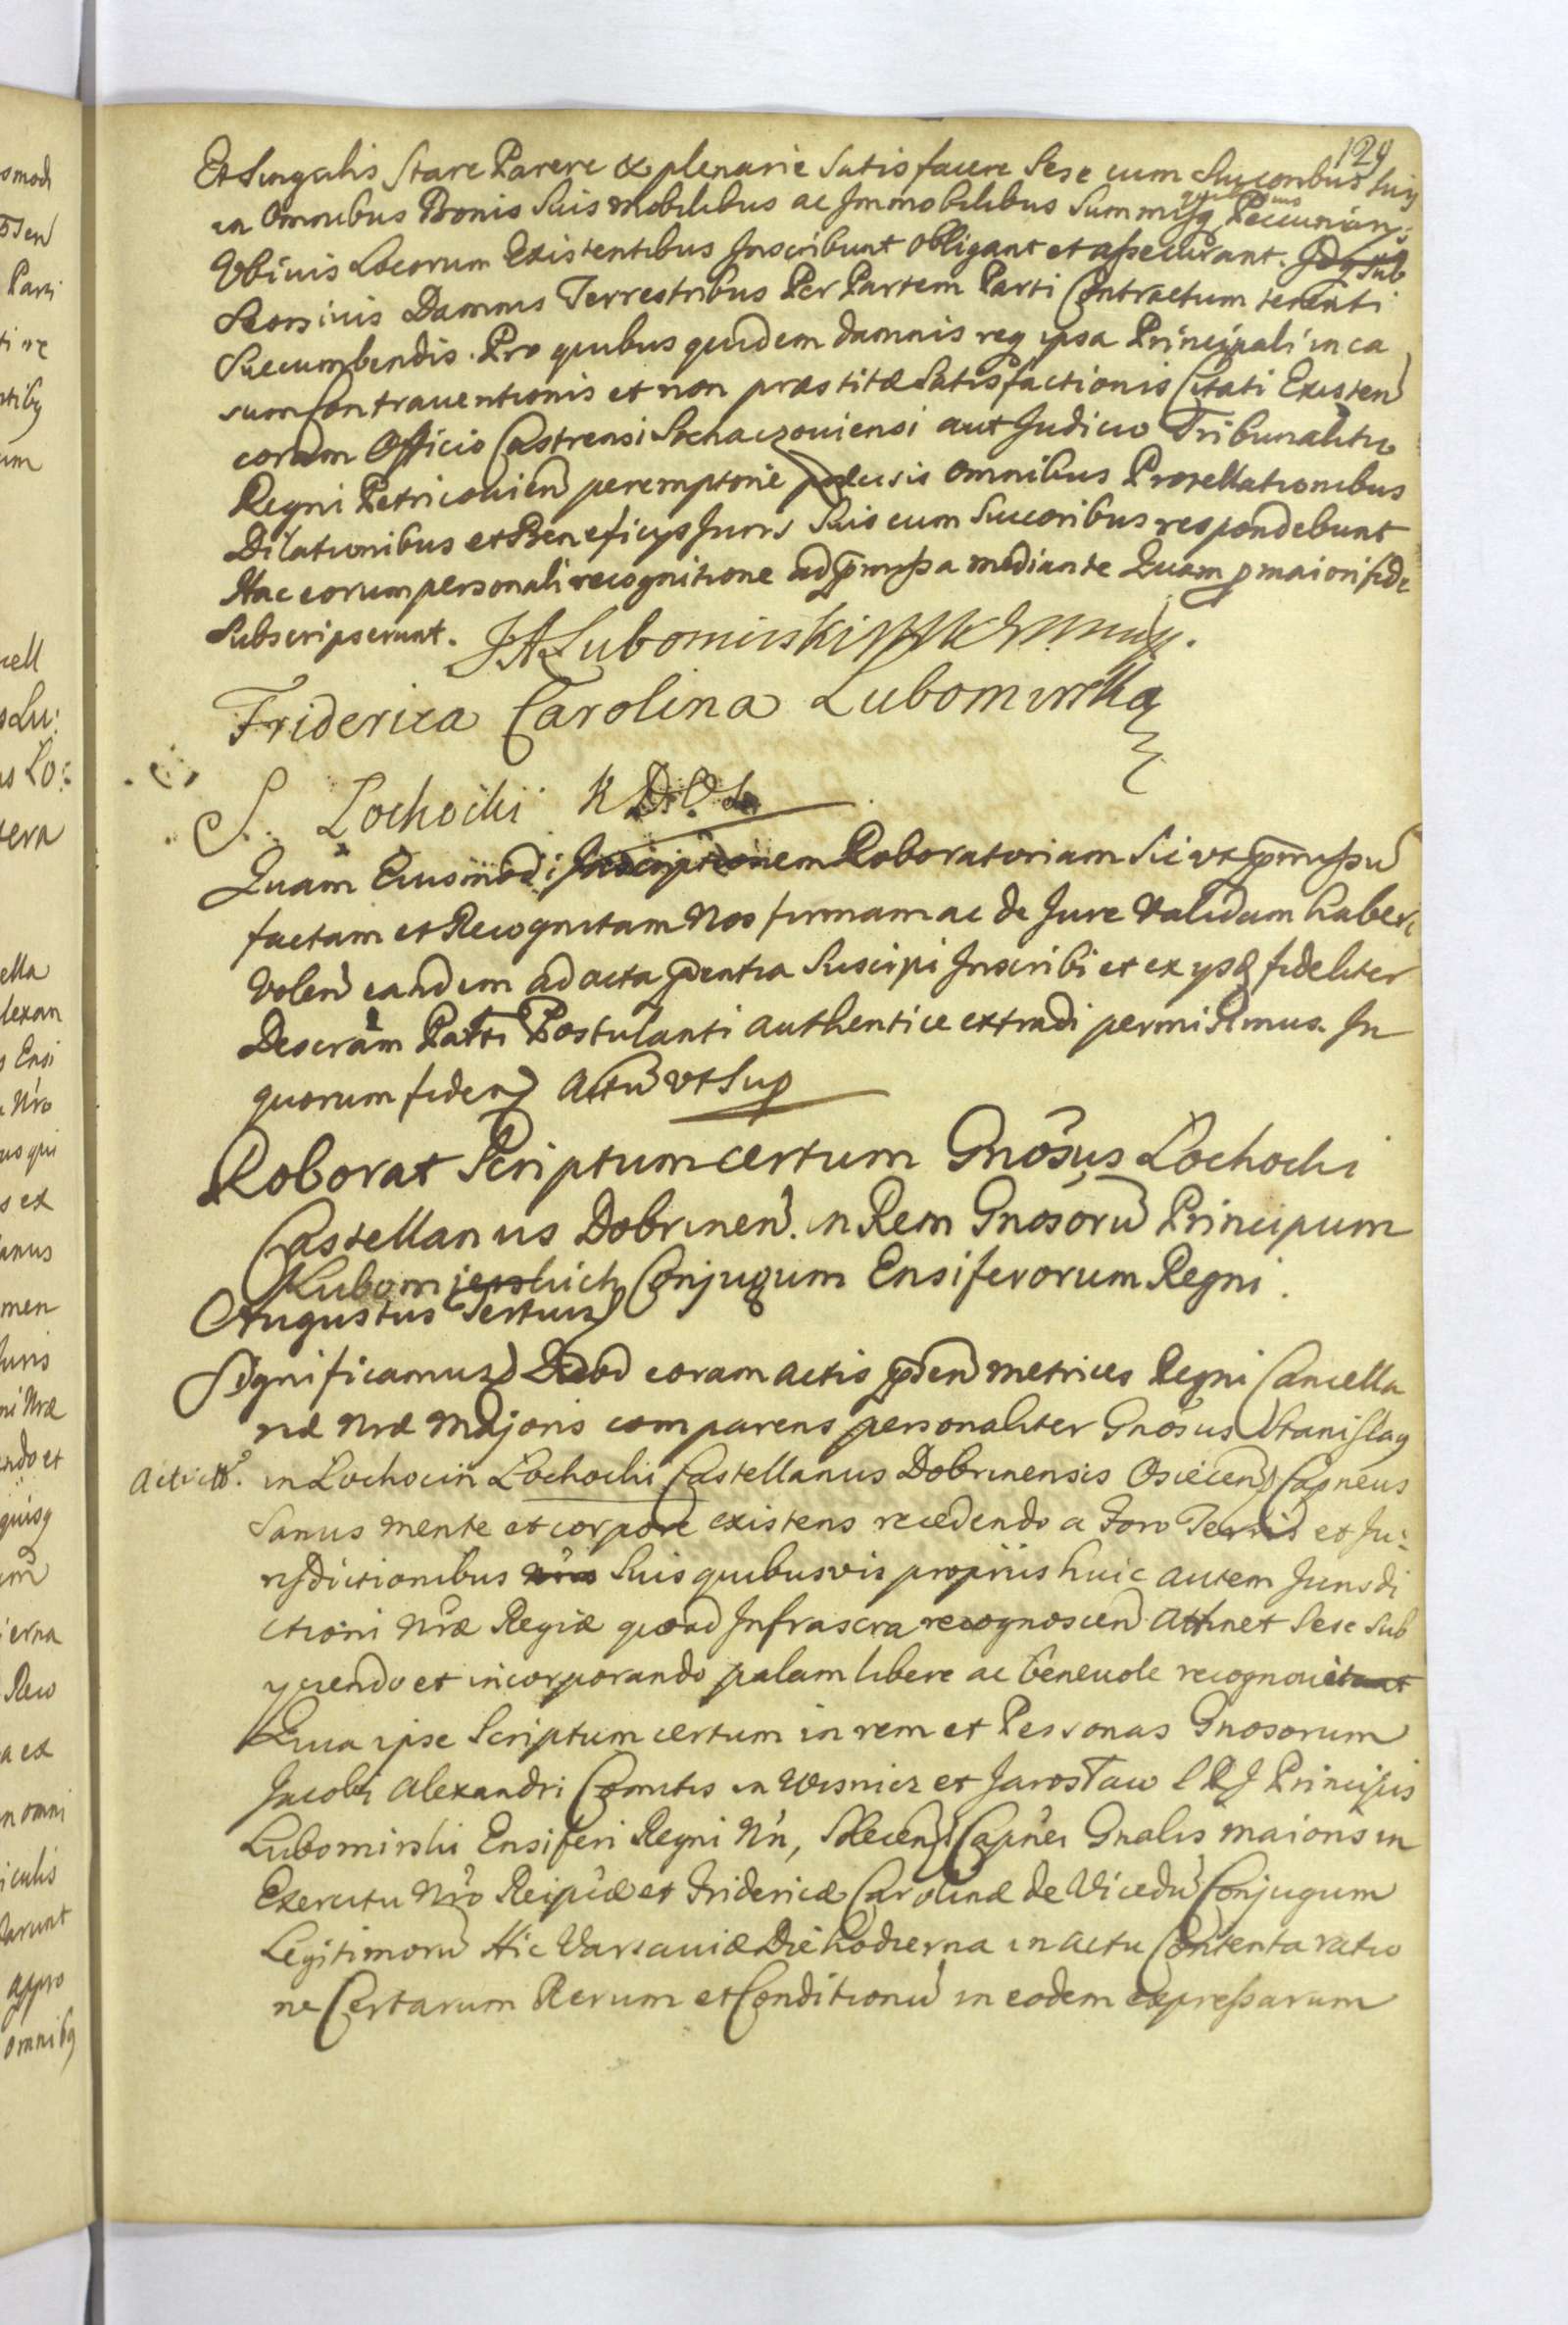 129
Et Singulis Stare Parere & plenarie Satisfacere Sese cum Succoribus suis
in Omnibus Bonis Suis mobilibus ac Immobilibus Summisq Pecuniarys
Vbiuis Locorum Existentibus Inscribunt obligant et assecurant. Idq Sub
Seorsiuis Damnis Terrestribus Per Partem Parti Contractum tenenti
Succumbendis. Pro quibus quidem damnis req ipsa Principali in ca
sum Contrauentionis et non præstitæ Satisfactionis Citati Existen
coram Officio Castrensi Sochaczouiensi aut Judicio Tribunalitio
Regni Petricouien peremptorie omnibus
Dilationibus et Beneficys Juris Suis cum Succoribus respondebunt
Hac eorum personali recognitione ad præmissa mediante Quam p maiori fide
Subscripserunt. JALubomirski
Friderica Carolina Lubomirska
S. Łochocki K D
Quam Eiusmodi Inscriptionem Roboratoriam Sic vt præmissu
factam et Recognitam Nos firmam ac de Jure Validam habere
Volen eandem ad acta pntia Suscipi Inscribi et ex ysd fideliter
Descram Parti Postulanti authentice extradi permisimus. In
quorum fidem Actu vt Sup
Roborat Scriptum certum Gnosus Łochocki
Castellanus Dobrinen. in Rem Gnosoru Principum
Lubomirskich Conjugum Ensiferorum Regni.
Augustus Tertius
Significamus Quod coram actis pnden metrices Regni Cancella
riæ Nræ Majoris comparens personaliter Gnosus Stanislaq
in Lochocin Łochocki Castellanus Dobrinensis Osiecen Capneus
Sanus mente et corpore existens recedendo a Foro Terris et Ju:
risdictionibus Suis quibusvis proprijs huic autem Jurisdi
ctioni Nræ Regiæ quoad Infrascra recognoscen Attinet Sese Sub
yciendo et incorporando palam libere ac beneuole recognouit
Quia ipse Scriptum certum in rem et Personas Gnosorum
Jacobi Alexandri Comitis in Wisnicz et Jarosław S R J Principis
Lubomirski Ensiferi Regni Nri, Capnei Gnalis maioris in
Exercitu Nro Reipcæ et Fridericæ Carolinæ de Vicedu Conjugum
Legitimoru Hic Varsauiæ Die hodierna in actu Contenta ratio
ne Certarum Rerum et Conditionu in eodem expressarum